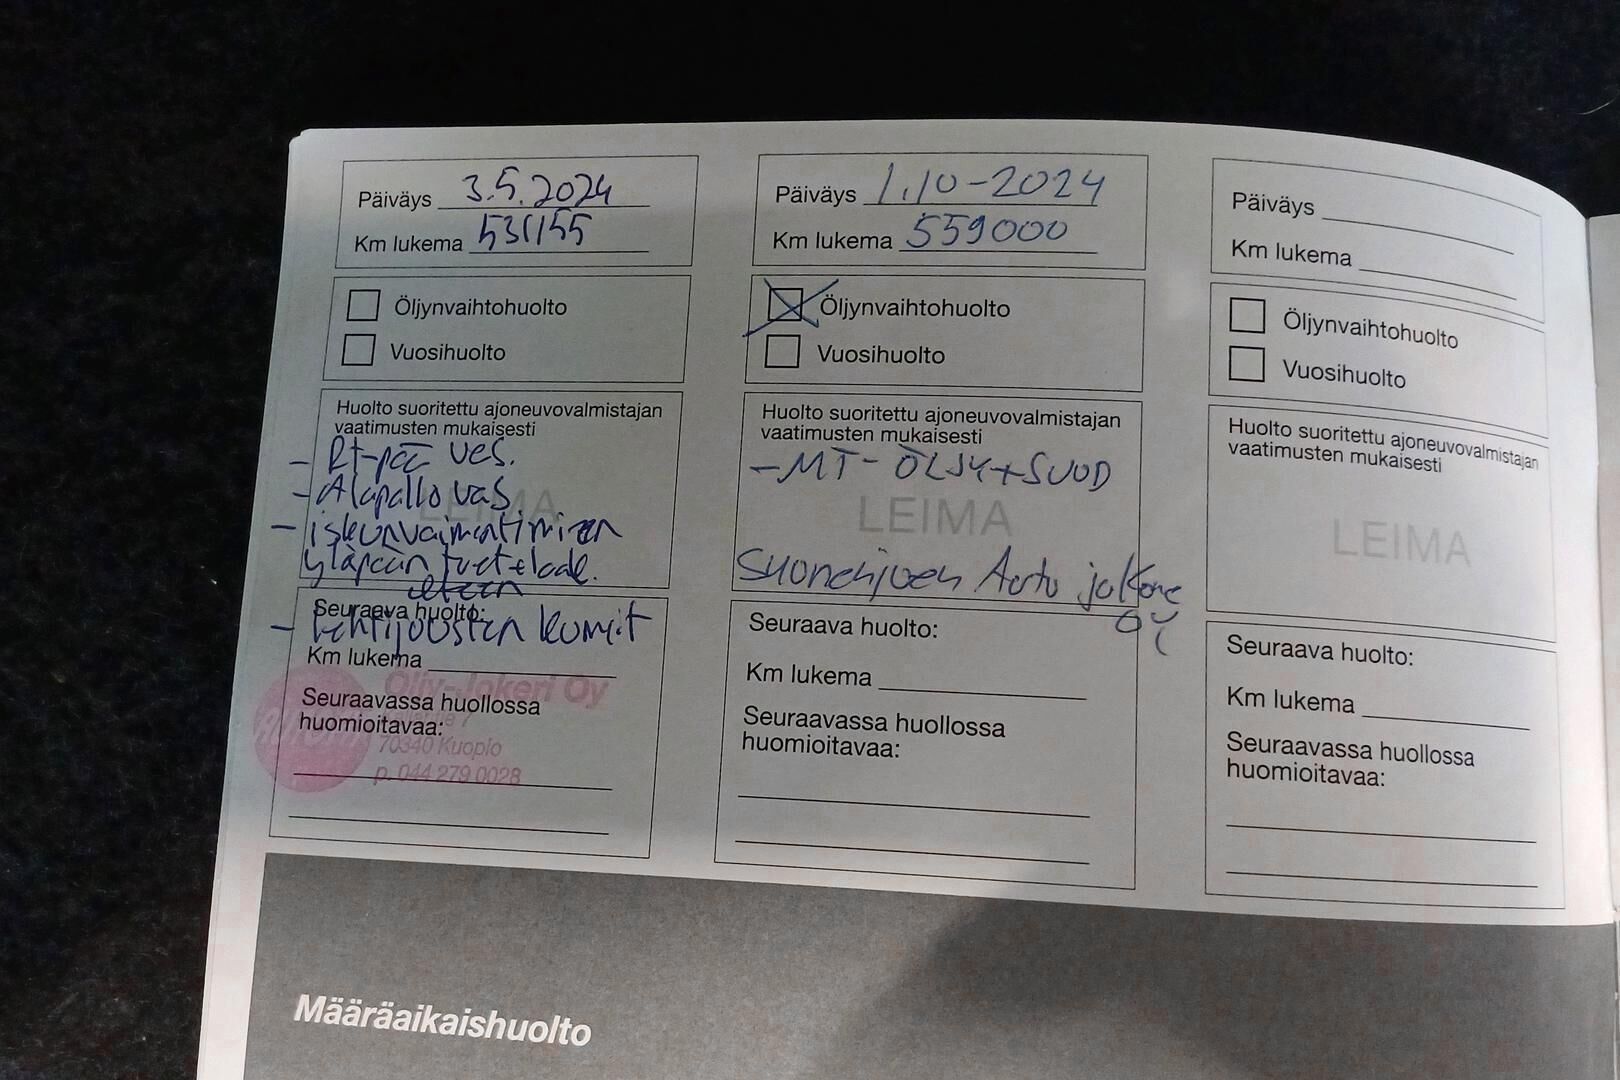 Päiväys 3.5.2024
Km lukema 531155
Öljynvaihtohuolto
Vuosihuolto
Huolto suoritettu ajoneuvovalmistajan
vaatimusten mukaisesti
- Rt-pää vas.
- Alapallo vas
LEIMA
- iskunvaimentimien
yläpään tuet + laak.
eteen
Seuraava huolto:
- Lehtijousten kumit
Km lukema
Oliv-Jokeri Oy
Seuraavassa huollossa
huomioitavaa:
70340 Kuopio
p. 044 279 0028
Päiväys 1.10-2024
Km lukema 559000
Öljynvaihtohuolto
Vuosihuolto
Huolto suoritettu ajoneuvovalmistajan
vaatimusten mukaisesti
- MT - ÖLJY + SUOD
LEIMA
Suonenjoen Auto ja Kone
OY
Seuraava huolto:
Km lukema
Seuraavassa huollossa
huomioitavaa:
Päiväys
Km lukema
Öljynvaihtohuolto
Vuosihuolto
Huolto suoritettu ajoneuvovalmistajan
vaatimusten mukaisesti
LEIMA
Seuraava huolto:
Km lukema
Seuraavassa huollossa
huomioitavaa:
Määräaikaishuolto